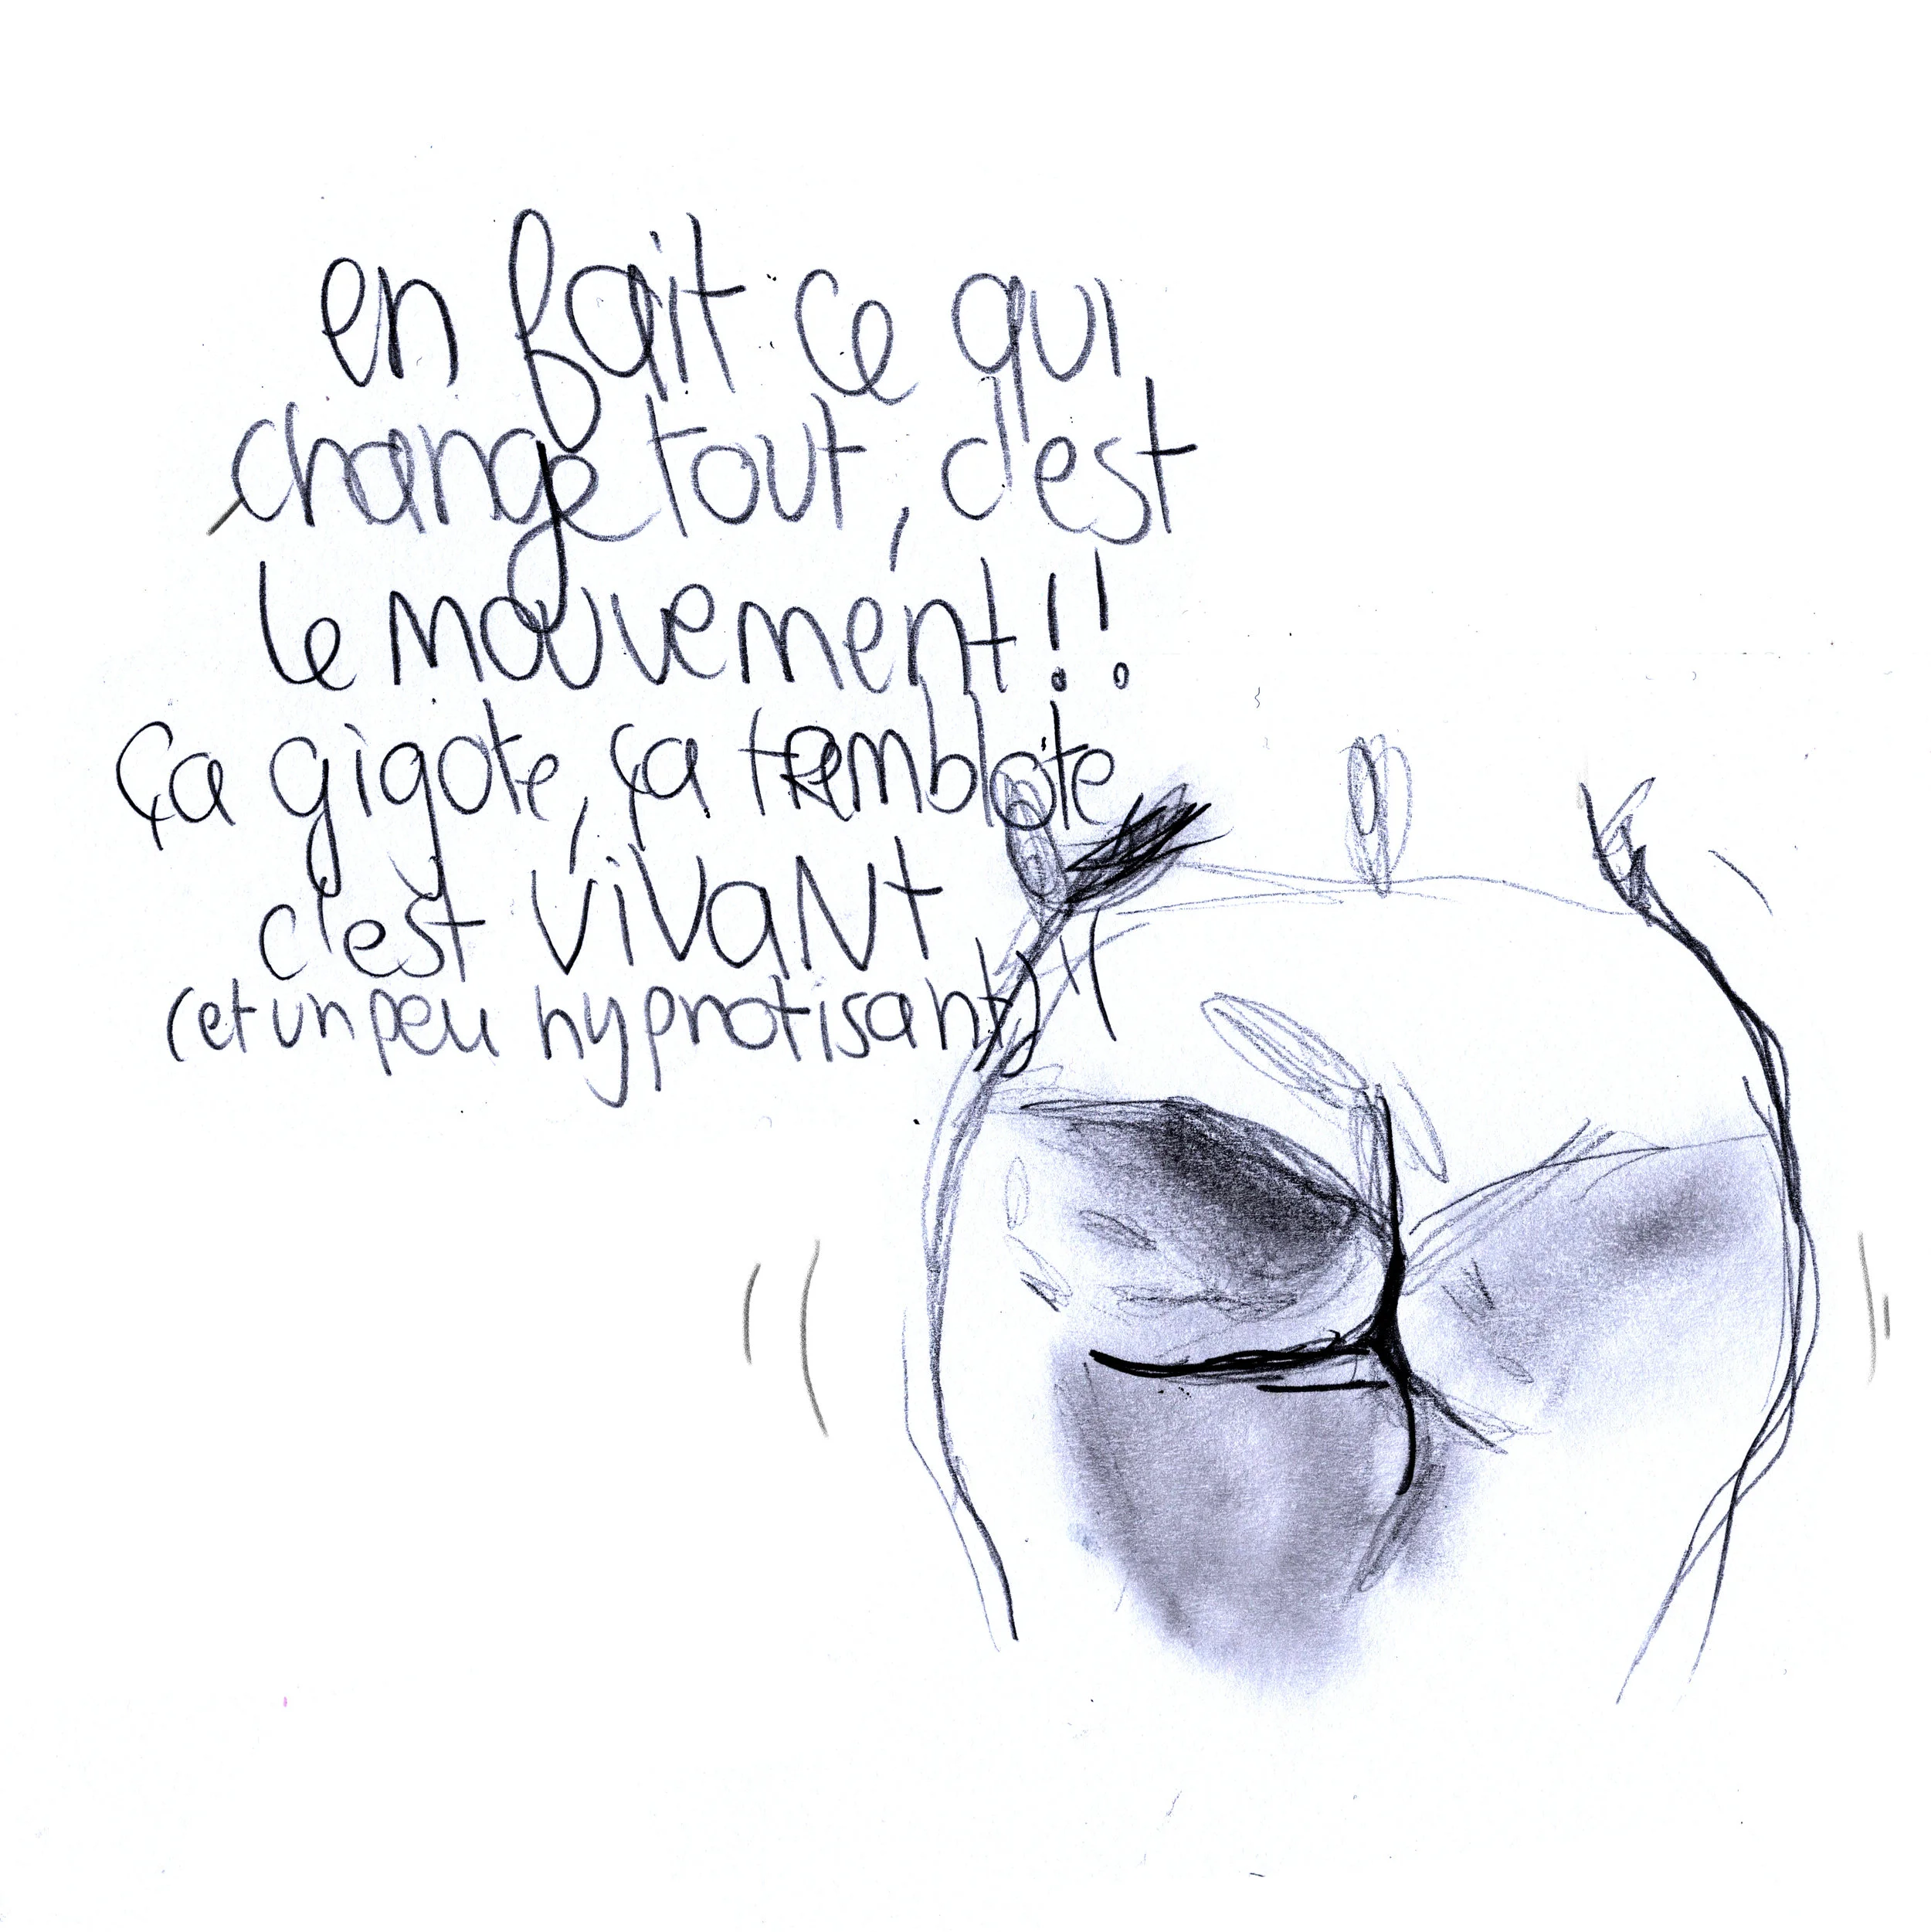 en fait ce qui
change tout, c'est
le mouvement!!
ça gigote, ça tremblote
c'est vivant
(et un peu hypnotisant)